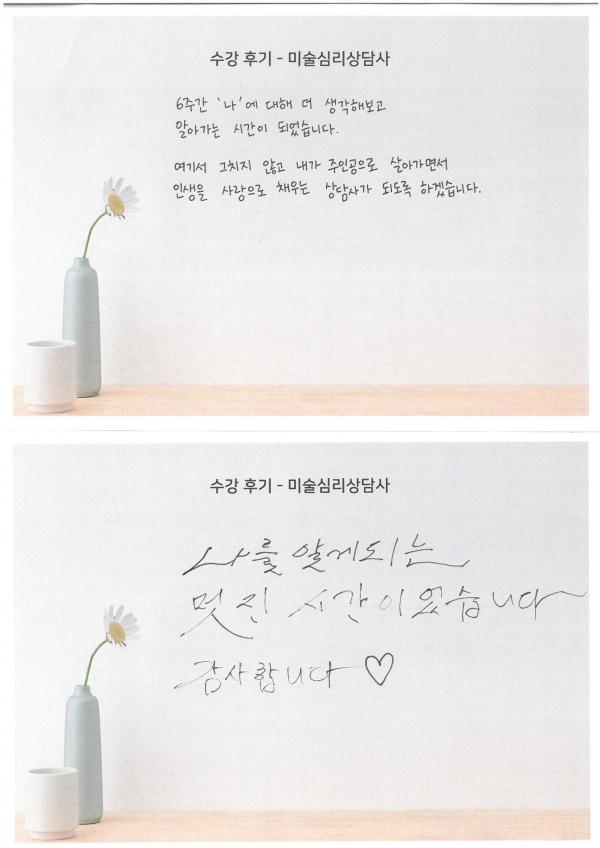 수강 후기 - 미술심리상담사
6주간 '나'에 대해 더 생각해보고
알아가는 시간이 되었습니다.
여기서 그치지 않고 내가 주인공으로 살아가면서
인생을 사랑으로 채우는 상담사가 되도록 하겠습니다.
수강 후기 - 미술심리상담사
나를 알게되는
멋진 시간이었습니다
감사합니다 ♡